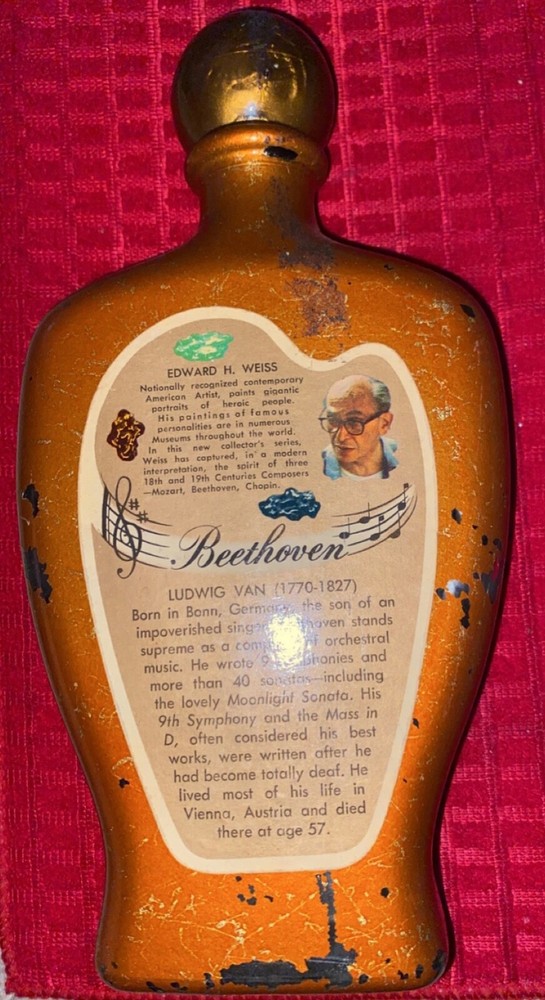 EDWARD H. WEISS
Nationally recognized contemporary
American Artist, paints gigantic
portraits of heroic people.
His paintings of famous
personalities are in numerous
Museums throughout the world.
In this new collector's series,
Weiss has captured, in a modern
interpretation, the spirit of three
18th and 19th Centuries Composers
—Mozart, Beethoven, Chopin.
Beethoven
LUDWIG VAN (1770-1827)
Born in Bonn, Germany, the son of an
impoverished stands
supreme as a orchestral
music. He wrote 9 and
more than 40 sonatas—including
the lovely Moonlight Sonata. His
9th Symphony and the Mass in
D, often considered his best
works, were written after he
had become totally deaf. He
lived most of his life in
Vienna, Austria and died
there at age 57.